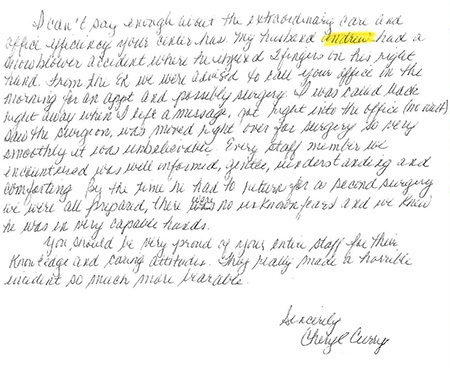 I can't say enough about the extraordinary care and
office efficiency your center has. My husband Andrew had a
snowblower accident where he injured 2 fingers on his right
hand. From the ER we were advised to call your office in the
morning for an appt and possibly surgery. I was called back
right away when I left a message, got right into the office (no wait)
saw the surgeon, was moved right over for surgery so very
smoothly it was unbelievable. Every staff member we
encountered was well informed, gentle, understanding and
comforting. By the time he had to return for a second surgery
we were all prepared, there were no unknown fears and we knew
he was in very capable hands.
You should be very proud of your entire staff for their
knowledge and caring attitudes. They really made a horrible
incident so much more bearable.
Sincerely
Cheryl Curry